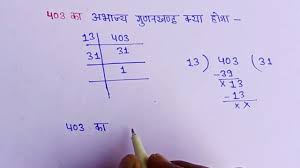 403 का अभाज्य गुणनखण्ड क्या होगा -
13 | 403
31 | 31
| 1
13 ) 403 ( 31
-39
x 13
-13
x x
403 का